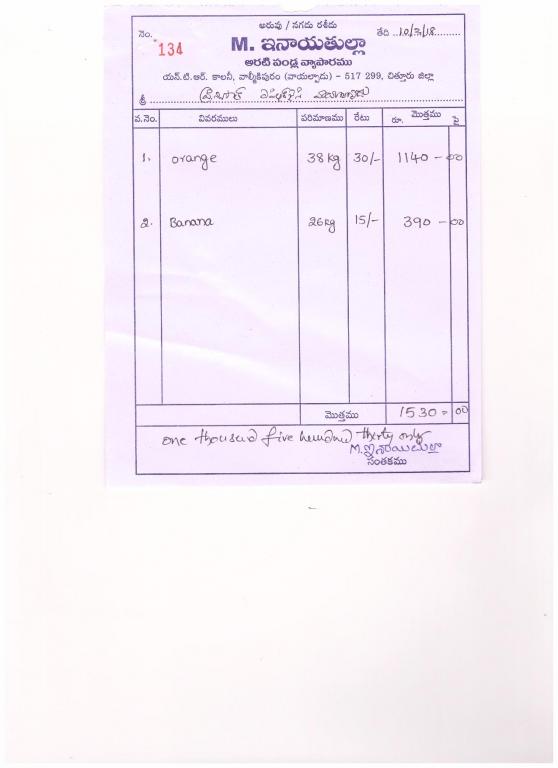 అరువు / నగదు రశీదు
నెం. 134
తేది 10/3/18
M. ఇనాయతుల్లా
అరటి పండ్ల వ్యాపారము
యన్.టి.ఆర్. కాలనీ, వాల్మీకిపురం (వాయల్పాడు) - 517 299, చిత్తూరు జిల్లా
శ్రీ
వ.నెం. వివరములు పరిమాణము రేటు మొత్తము రూ. పై
1. orange 38 kg 30/- 1140 - 00
2. Banana 26 kg 15/- 390 - 00
మొత్తము 1530 = 00
one thousand five hundred thirty only
M. ఇనాయతుల్లా
సంతకము